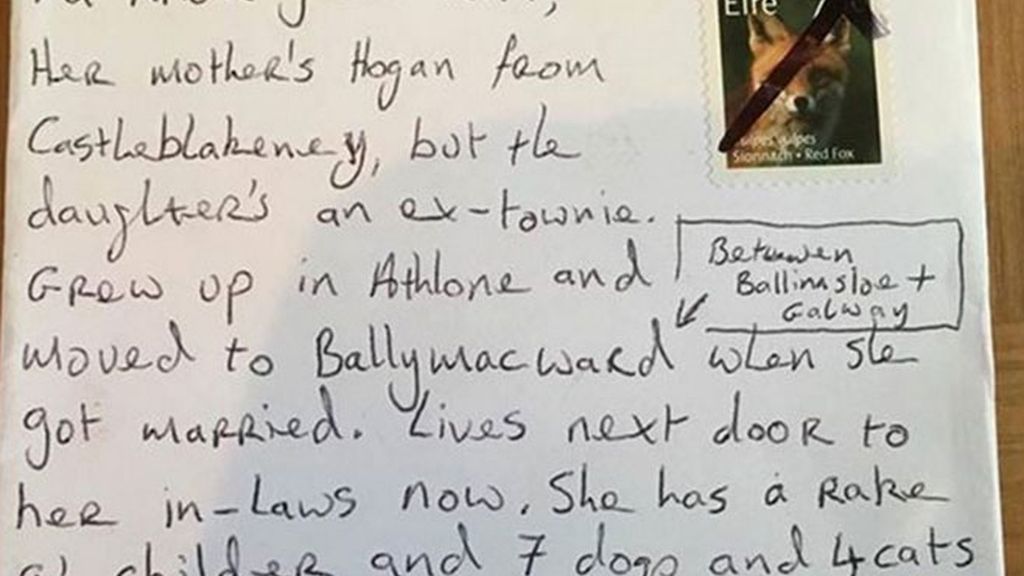 Éire
Her mother's Hogan from
Castleblakeney, but the
daughter's an ex-townie.
Grew up in Athlone and
Between
Ballinasloe +
Galway
moved to Ballymacward when she
got married. Lives next door to
her in-laws now. She has a rake
childer and 7 dogs and 4 cats
Sionnach • Red Fox